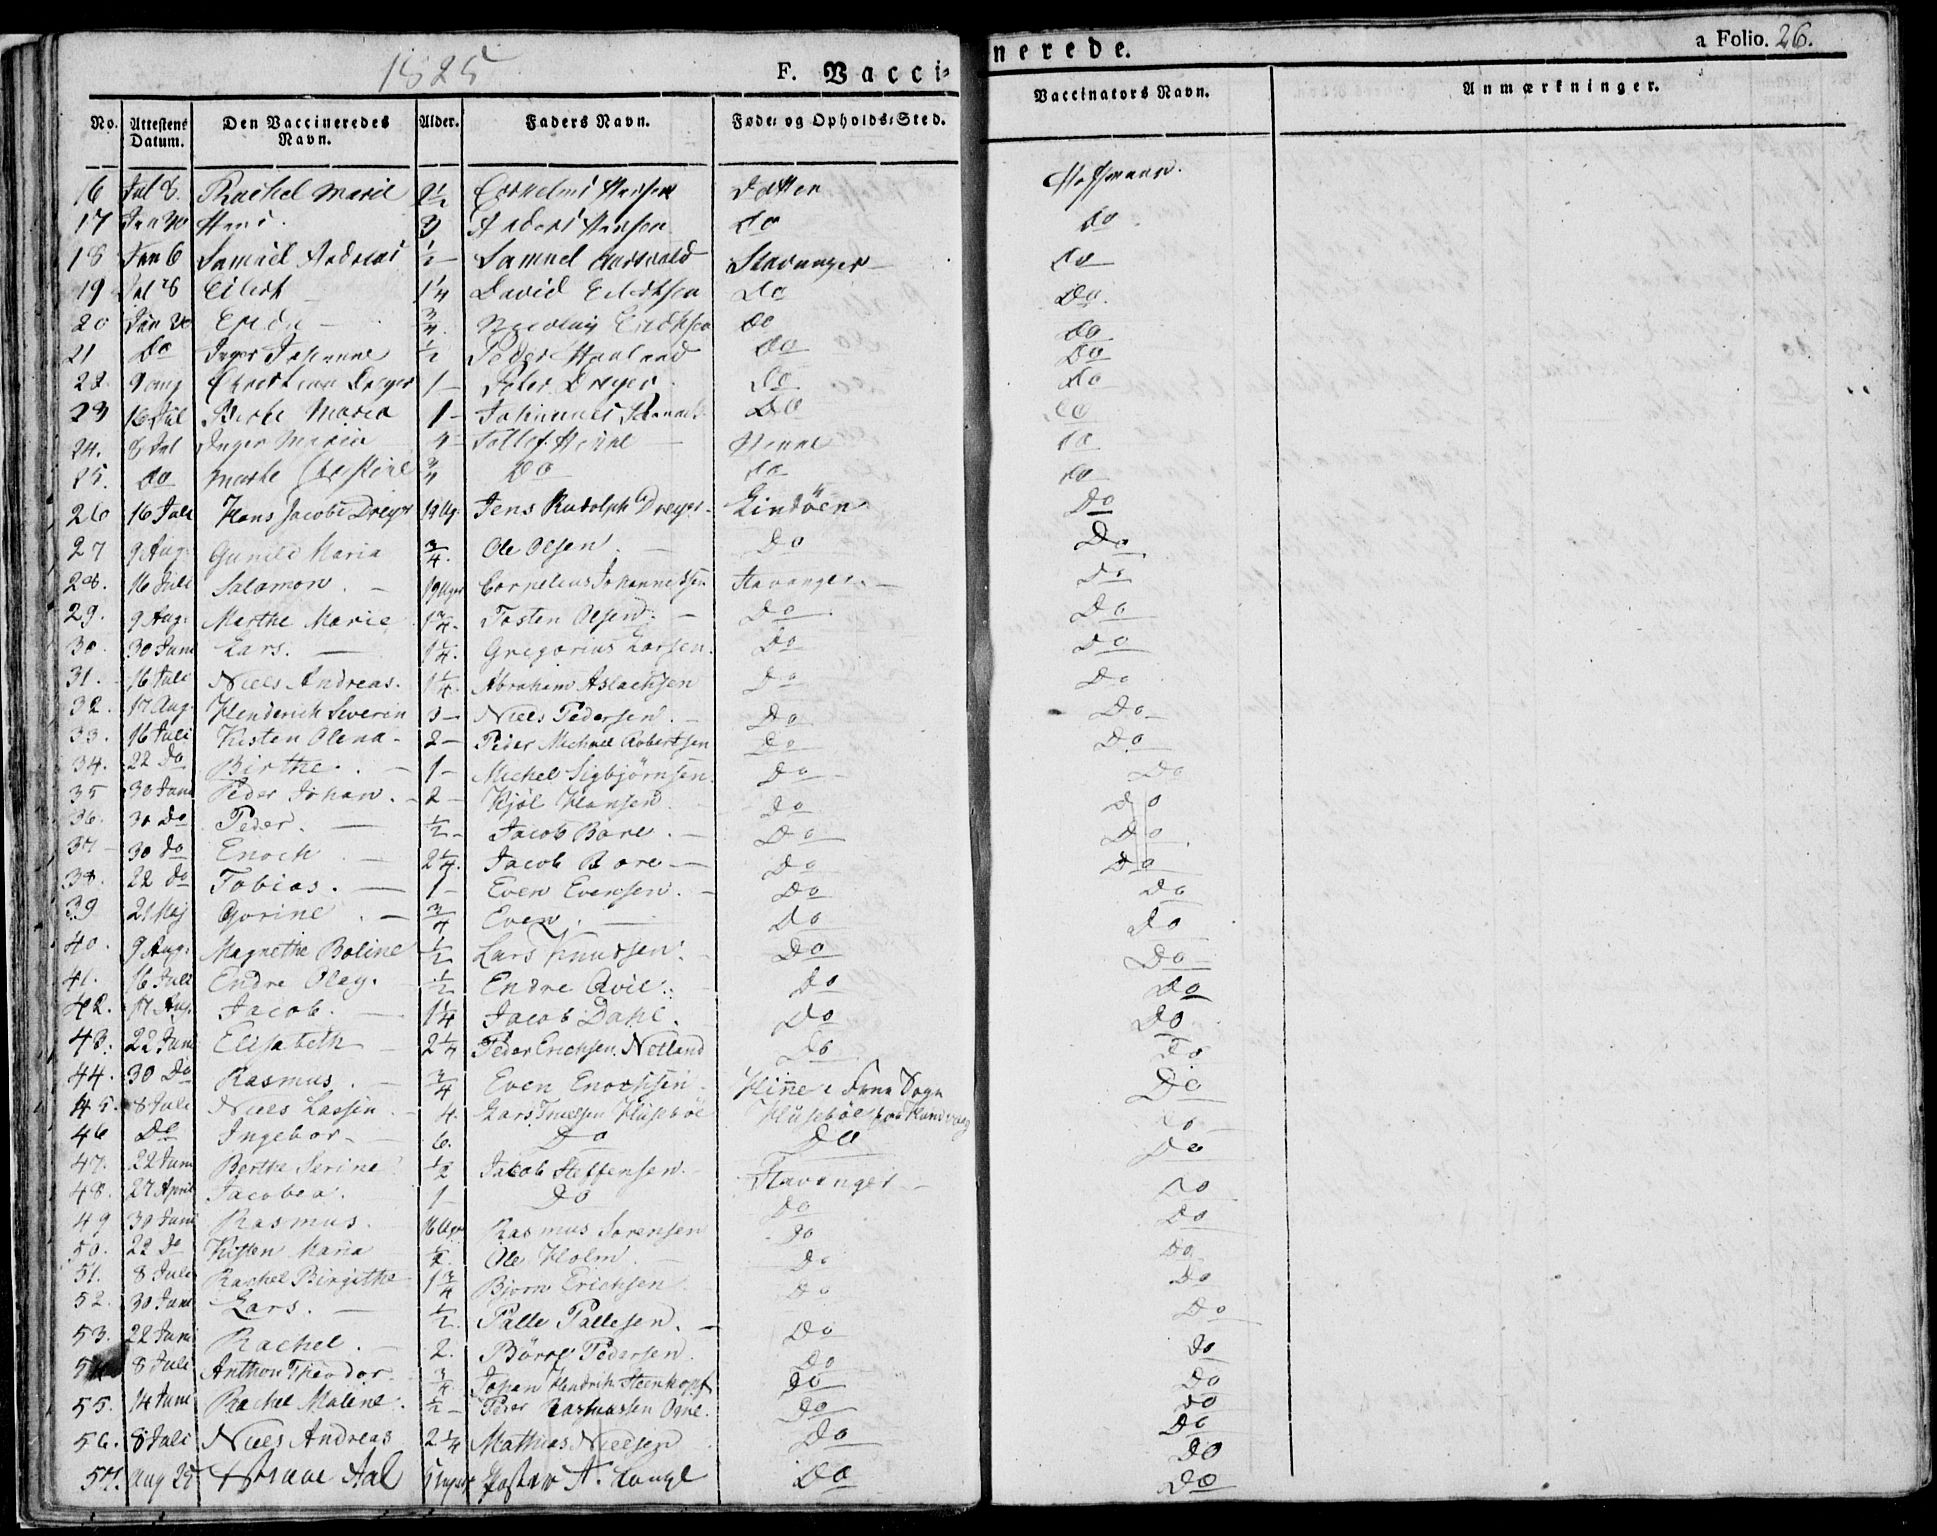 1825
F. Vaccinerede.
a Folio. 26.
No. Attestens Datum. Den Vaccineredes Navn. Alder. Faders Navn. Føde- og Opholds-Sted. Vaccinators Navn. Anmærkninger.
16 Jul 8. Rachel Marie 2½ Cornelius Hansen
17 Hans. 3 Anders Hansen do do
18 Jan 6 Samuel Andreas ½ – Samuel Stavanger – do
19 Jul 8 Eilert 1¼ David Eilertsen Do Do.
20 ¾ Nicolay do do
21 Do Inger Johanne ½ Peder Haaland do Do
22. 9 aug Christian Dreyer 1 – Peter Dreyer do do
23 16 Jul Birthe Maria 1 – Johannes Do do
24. 8 Jul Inger Maria Tollef Hinne Hinne do
25. do Marthe ¾ Do do do
26 16 Juli Hans Jacob Dreyer 19 Ug. Jens Rudolph Dreyer. Lindöen Do
27 9 Aug. Gunild Maria ¾. Ole Olsen. – Do Do
28. 16 Juli Salamon. – 19 Uger Cornelius Johannessen Stavanger. – Do
29. 9 Aug. Marthe Marie 1¾. Tosten Olsen. – Do Do
30. 30 Juni Lars. – 1¼. Gregorius Larsen. Do Do
31. 16 Juli Niels Andreas. 1¼. Abraham Aslachsen Do Do
32. 17 Aug. Henderich Severin 3 – Niels Pedersen. – Do Do –
33. 16 Juli Kisten Olena – 2 – Peder Michael Robertsen Do Do
34. 22 Do Birthe. – 1 – Michel Sigbjørnsen. Do Do
35 30 Juni Peder Johan. – 2 – Kjøl Hansen. Do Do
36. 30 Do Peder. – ½ – Jacob Bore. – Do Do
37 30 Do Enoch. – 2¼. Jacob Bore – Do Do
38. 22 Do Tobias. – 1 – Even Evensen. – Do Do
39 21 Maj Gorine. – ¾ Even. – Do Do
40. 9 Aug. Magrethe Boline ½ Lars Knudsen. Do Do
41. 16 Juli Endre Olay. ½ Endre Qvie. Do Do
42. 17 Aug. Jacob. – 1¼ Jacob Dahl. Do Do
43. 22 Juni Elisabeth – 2¼ Peder Erichsen Netland Do Do
44. 30 Do Rasmus. – ¾ Even Enochsen. Hinne i Sogn Do
45. 8 Juli Niels Lassen 4. Lars Truelsen Husebøe Husebøe paa Hundvaag Do
46 Do Ingebor – 6. Do Do Do
47. 22 Juni Berthe Serine ½ Jakob Steffensen. Stavanger – Do
48. 27 April Jacobea. 1 – Do Do Do
49 30 Juni Rasmus. 16 Uger Rasmus Sorensen Do Do
50. 22 Do Kisten Maria ½. Ole Holm. Do Do
51. 8 Juli Rachel Birgithe 1¾ Bjorn Erichsen Do Do
52. 30 Juni Lars. – ½. Palle Pallesen. – Do Do
53. 22 Juni Rachel. – 2. Börre Pedersen. Do Do
54 8 Juli Anthon Theodor. ¾ Johan Hendrik Steenkopf Do Do
55. 14 Juni Rachel Malene. ½ – Peder Rasmussen Ogne. Do Do
56. 8 Juli Niels Andreas 2¼ Mathias Nielsen Do Do
57. Aug 25 Gustav A. Lange Do Do